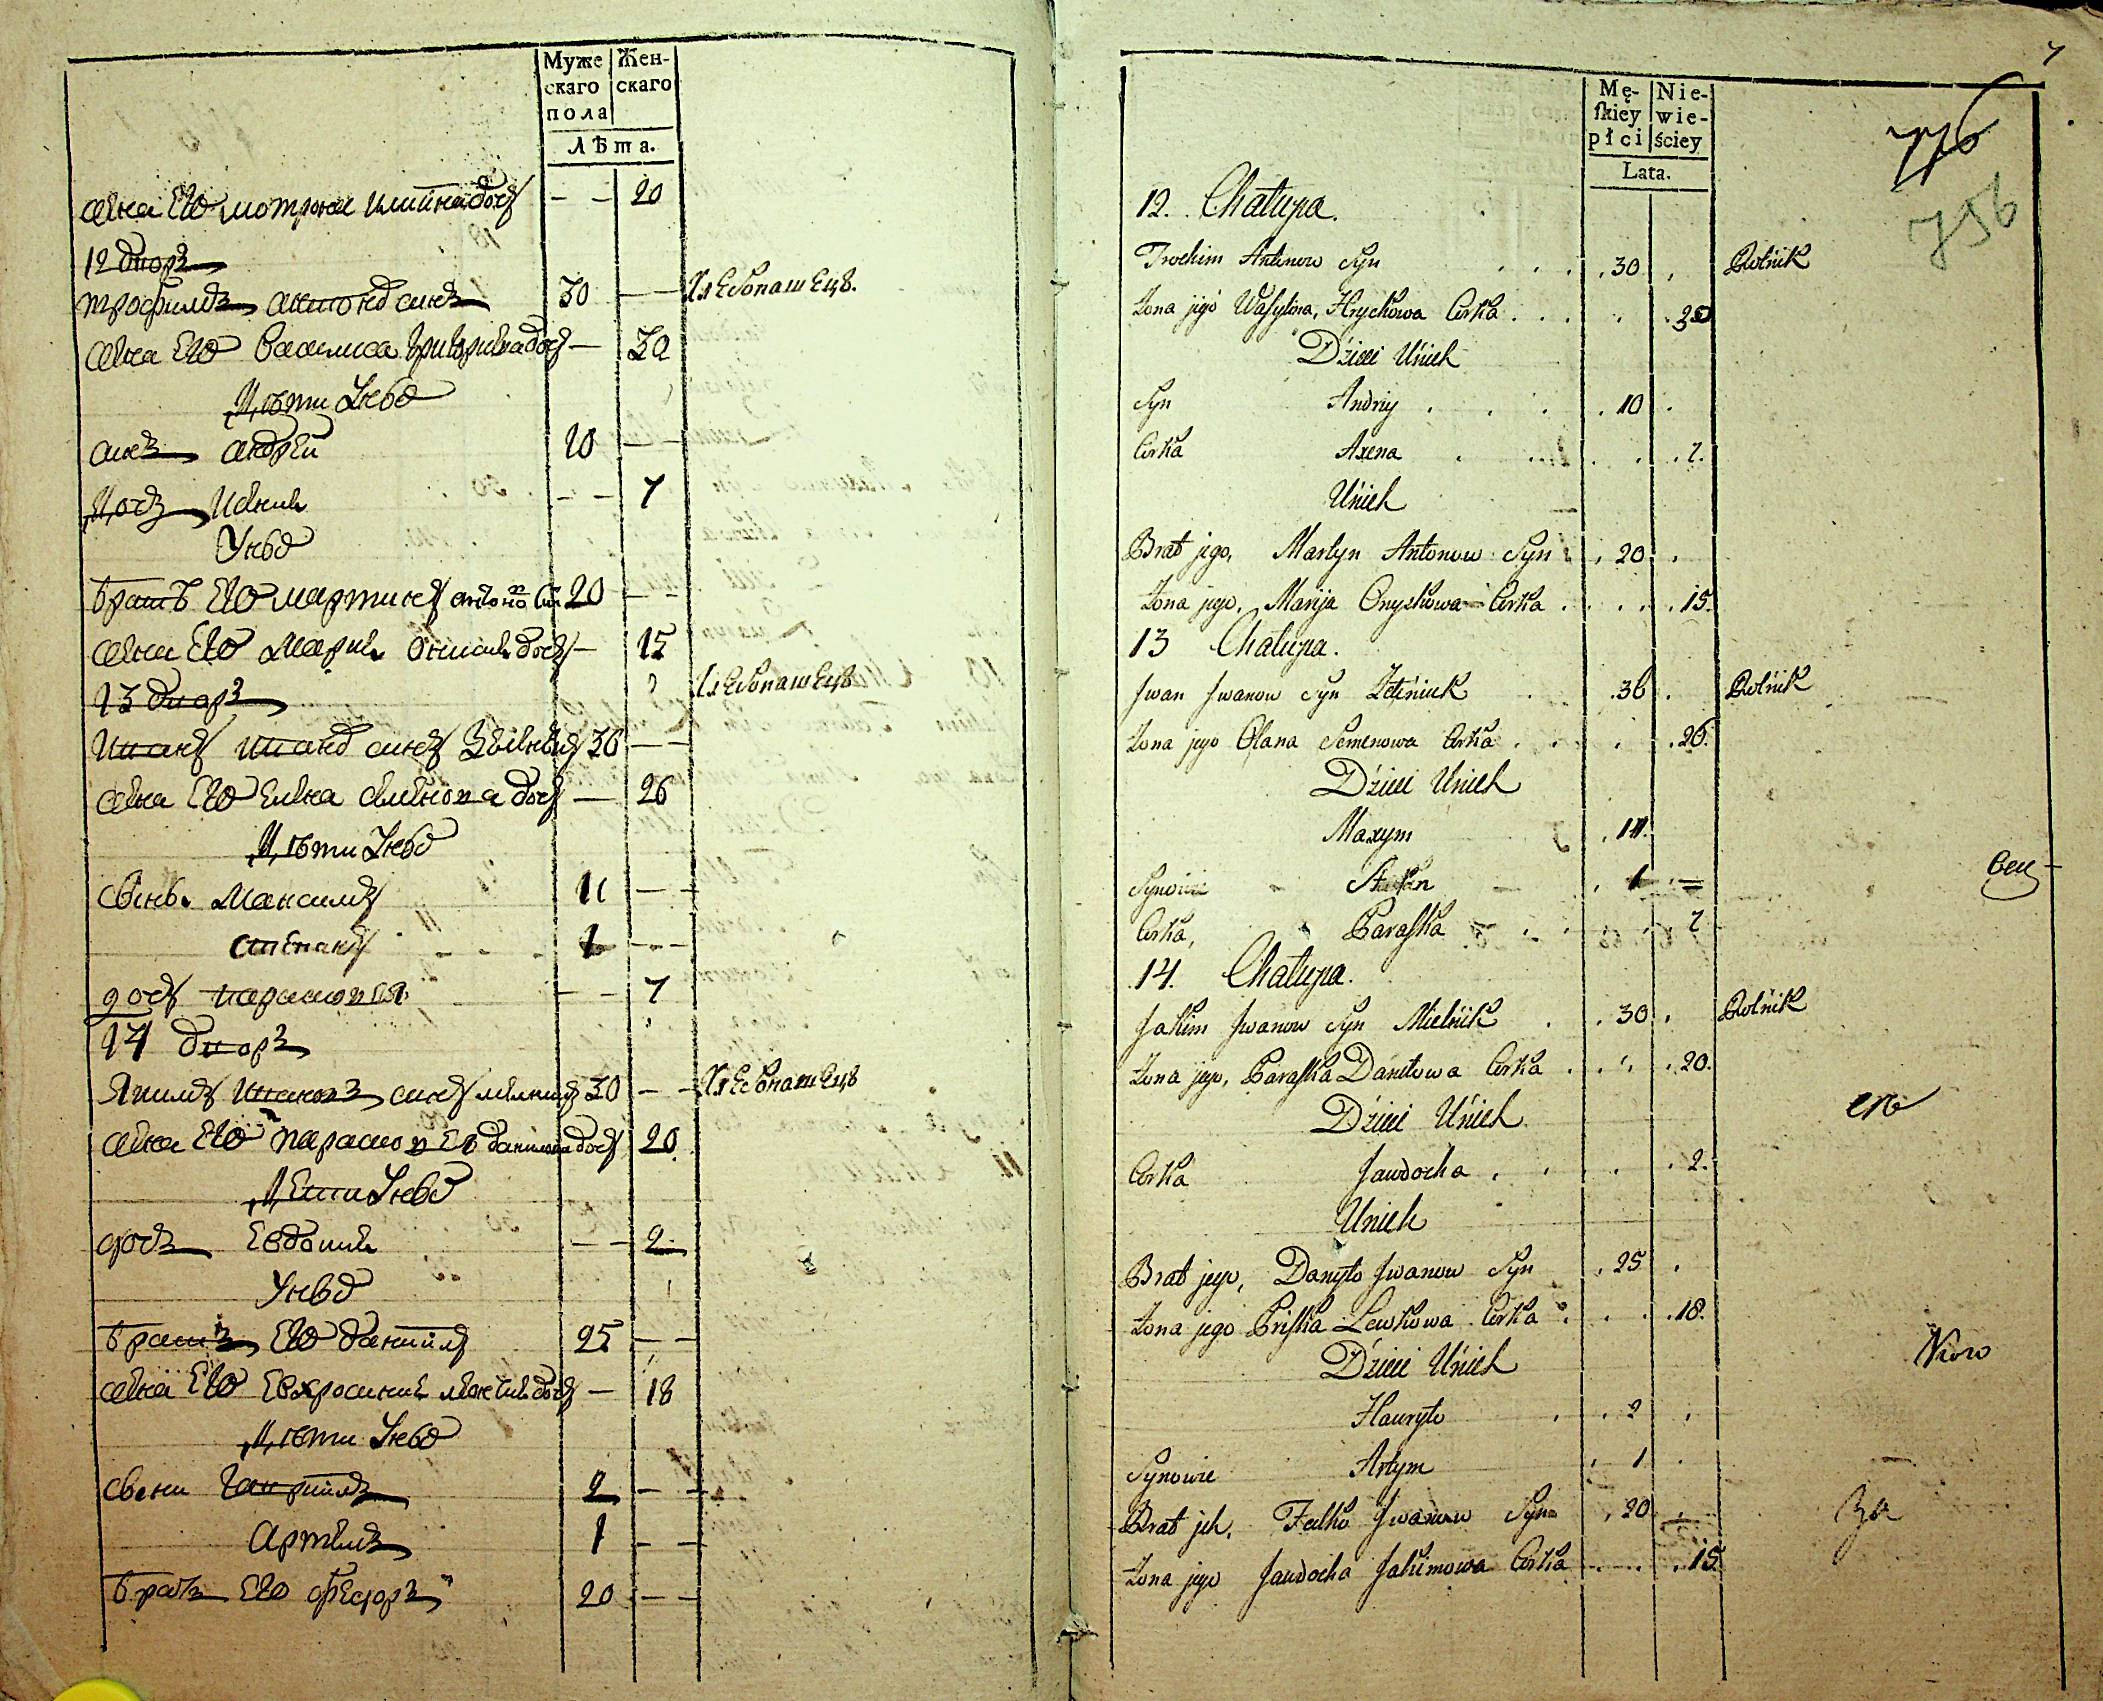 Муже
скаго
пола
Жен-
скаго
Лѣта.
жена Его мотрона дочъ — — 20
12 дворъ
трофимъ антоновъ синъ 30 — — хлебопашецъ.
жена Его василиса григориева дочъ — 30
Дѣти Унеѣо
синъ андрей 10 — —
Дочъ — — 7
Унѣо
братъ Его мартинъ антоно син 20 — —
жена Его Мария дочъ — 15
13 дворъ хлебопашецъ
иванъ иванов синъ 36 — —
жена Его Елена семенова дочъ — 26
Дѣти Унеѣо
Максимъ 11 — —
степанъ 1 — —
дочъ парасковея — — 7
14 дворъ
Якимъ иванов синъ мелник 30 — — хлебопашецъ
жена Его парасковея данилова дочъ 20
Дети Унеѣо
дочъ Евдокия — — 2
Унѣо
братъ Его даниилъ 25 — —
жена Его Евхросиния дочъ — 18
Дѣти Унеѣо
гавриилъ 2 — —
Артемъ 1 — —
братъ Его федоръ 20 — —
7
Mę-
ſkiey
płci
Nie-
wie-
ściey
Lata.
776
756
12. Chałupa.
Trochim Antonow Syn . . . 30 . Rolnik
Zona jego Wasylina, Hryckowa Corka . . . . 30
Dzieci Uńich
Syn Andriy . . . . 10 .
Corka Axena . . . . 7.
Uńich
Brat jego, Martyn Antonow Syn . 20 .
Zona jego, Marija Onyskowa Corka . . . . 15.
13 Chałupa.
Jwan Jwanow Syn . 36 . Rolnik
Zona jego Ołana Semenowa Corka . . . . 26.
Dzieci Uńich
Maxym . 11.
Synowie Stefan . 1
Corka, Paraſka . . . . 7
14. Chałupa.
Jakim Jwanow Syn Mielnik . . 30 . Rolnik
Zona jego, Paraſka Daniłowa Corka . . . 20.
Dzieci Uńich
Corka Jawdocha . . . . 2.
Uńich
Brat jego, Danyło Jwanow Syn . 25 .
Zona jego Priſka Lewkowa Corka . . . 18.
Dzieci Uńich
Hawryło . . 2 .
Synowie Artym . 1 .
Brat ich, Fedko Jwanow Syn . 20 .
за
Zona jego Jawdocha Jakimowa Corka . . . 15.